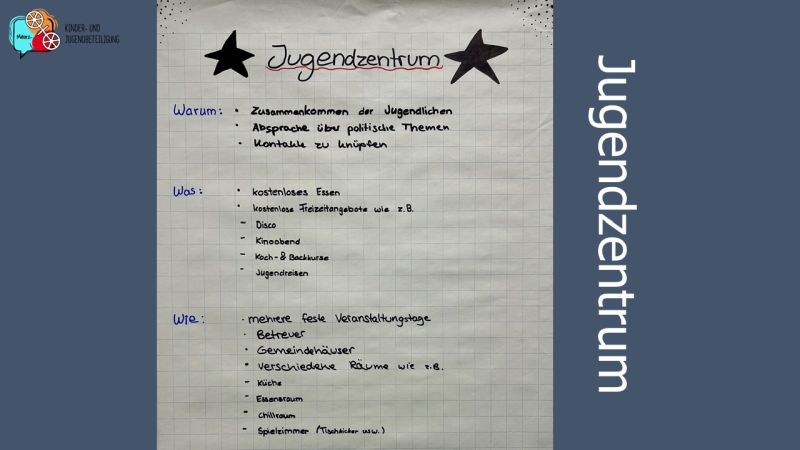 Menz
KINDER- UND
JUGENDBETEILIGUNG
Jugendzentrum
Warum: • Zusammenkommen der Jugendlichen
• Absprache über politische Themen
• Kontakte zu knüpfen
Was: • kostenloses Essen
• kostenlose Freizeitangebote wie z.B.
- Disco
- Kinoabend
- Koch- & Backkurse
- Jugendreisen
Wie: • mehrere feste Veranstaltungstage
• Betreuer
• Gemeindehäuser
• verschiedene Räume wie z.B.
- Küche
- Essensraum
- Chillraum
- Spielzimmer (Tischkicker usw.)
Jugendzentrum